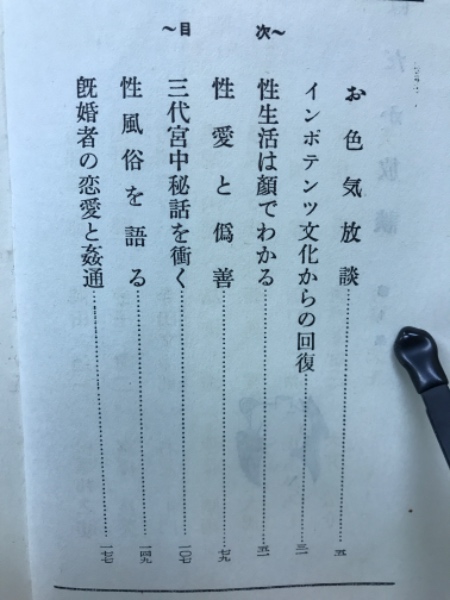 ～目次～
お色気放談……五
インポテンツ文化からの回復……三一
性生活は顔でわかる……五一
性愛と偽善……七九
三代宮中秘話を衝く……一〇七
性風俗を語る……一四九
既婚者の恋愛と姦通……一七七